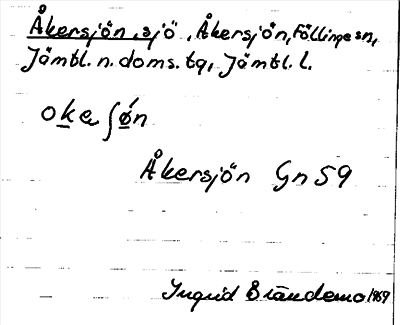 Åkersjön, sjö, Åkersjön, Föllinge sn,
Jämtl. n. doms. tg, Jämtl. l.
okeʃǿn
Åkersjön Gn 59
Ingrid Brändemo 1969